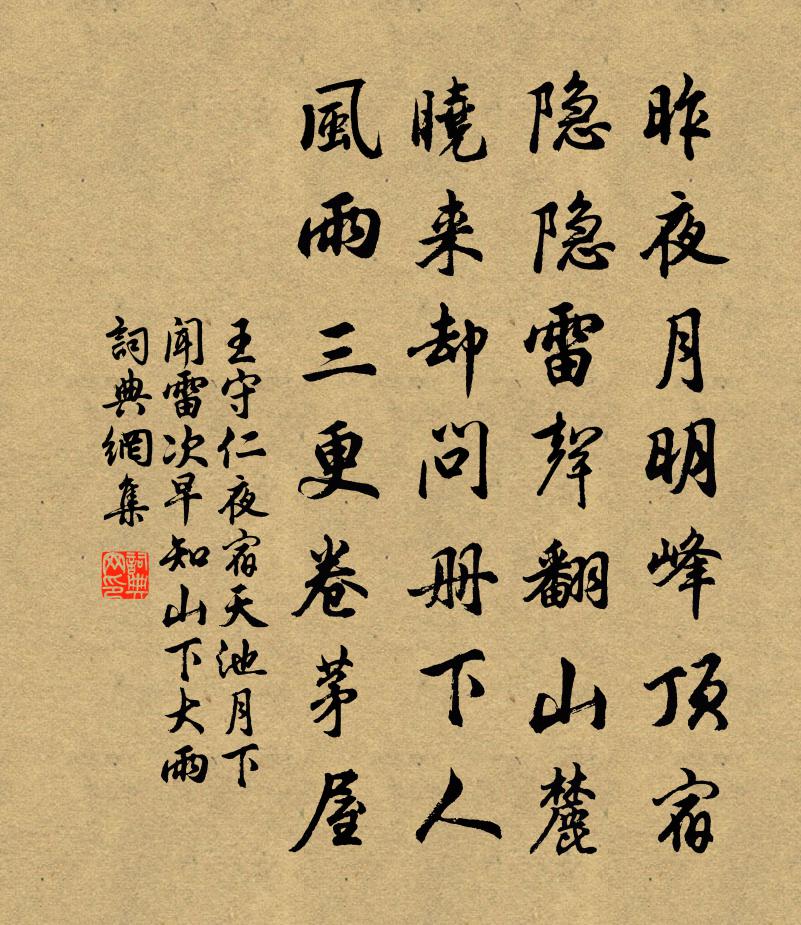 昨夜月明峰顶宿
隐隐雷聲翻山麓
曉来却问册下人
風雨三更卷茅屋
王守仁夜宿天池月下
闻雷次早知山下大雨
詞典網集
詞典网印